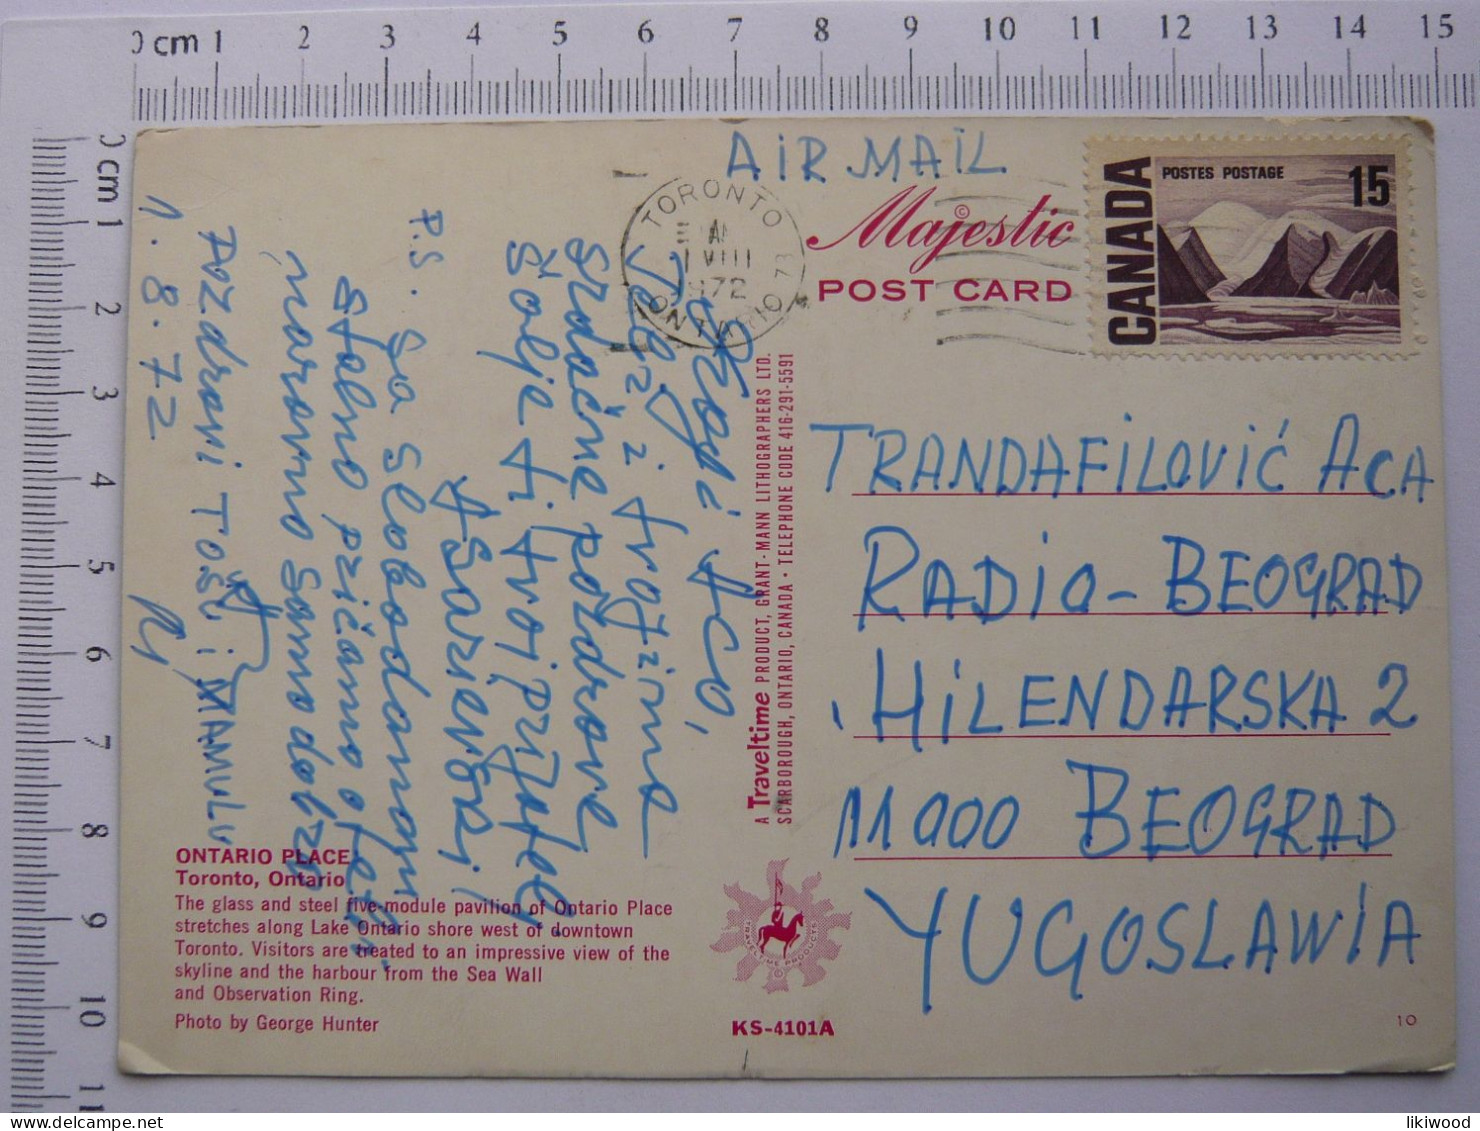 0 cm 1 2 3 4 5 6 7 8 9 10 11 12 13 14 15
0 cm 1 2 3 4 5 6 7 8 9 10 11
AIR MAIL
Majestic ©
POST CARD
TORONTO
VIII
1972
ONTARIO
CANADA
POSTES POSTAGE 15
TRANDAFILOVIĆ ACA
RADIO-BEOGRAD
HILENDARSKA 2
11000 BEOGRAD
YUGOSLAWIA
Dragi Aco,
Tebi i tvojima
srdačne pozdrave
šalje ti tvoj prijatelj
P.S. Sa Slobodanom
stalno pričamo o tebi
naravno samo dobro
POZDRAVI TOŠU i MAMULU
1.8.72
A Traveltime PRODUCT, GRANT-MANN LITHOGRAPHERS LTD.
SCARBOROUGH, ONTARIO, CANADA · TELEPHONE CODE 416-291-5591
ONTARIO PLACE
Toronto, Ontario
The glass and steel five-module pavilion of Ontario Place
stretches along Lake Ontario shore west of downtown
Toronto. Visitors are treated to an impressive view of the
skyline and the harbour from the Sea Wall
and Observation Ring.
Photo by George Hunter
TRAVELTIME PRODUCTS
KS-4101A
10
likiwood